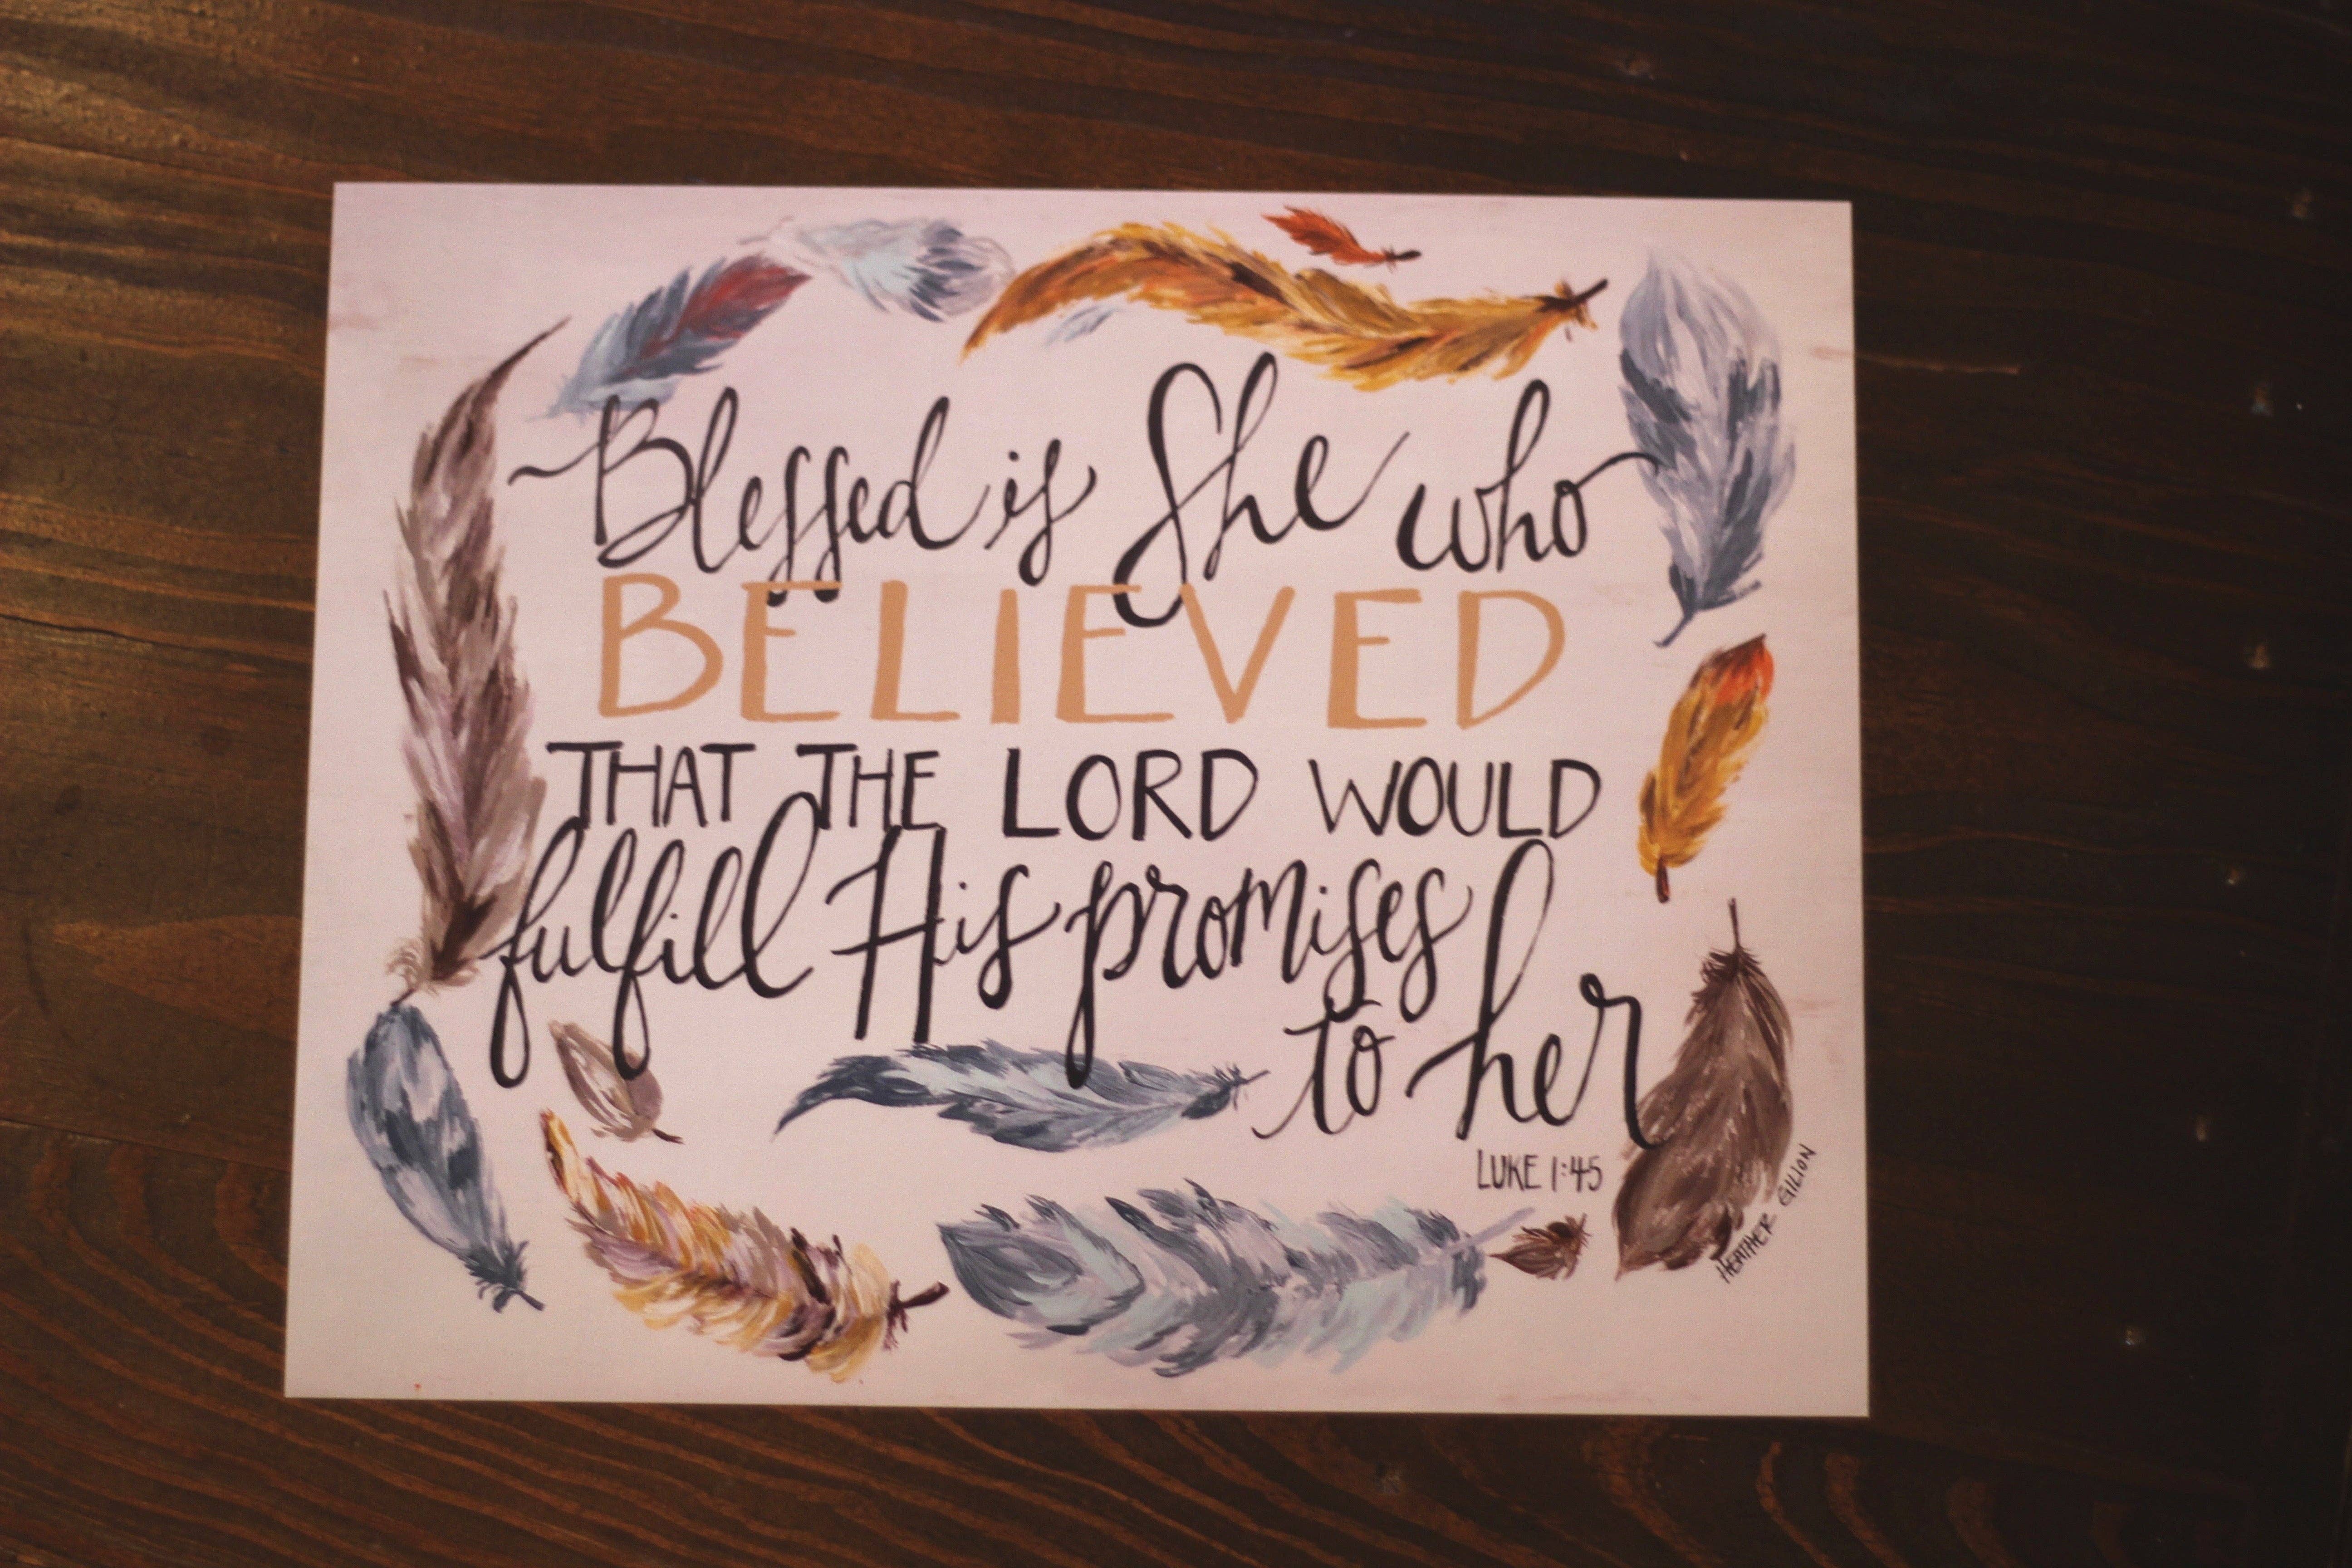 Blessed is She who
BELIEVED
THAT THE LORD WOULD
fulfill His promises
to her
LUKE 1:45
HEATHER GILLION